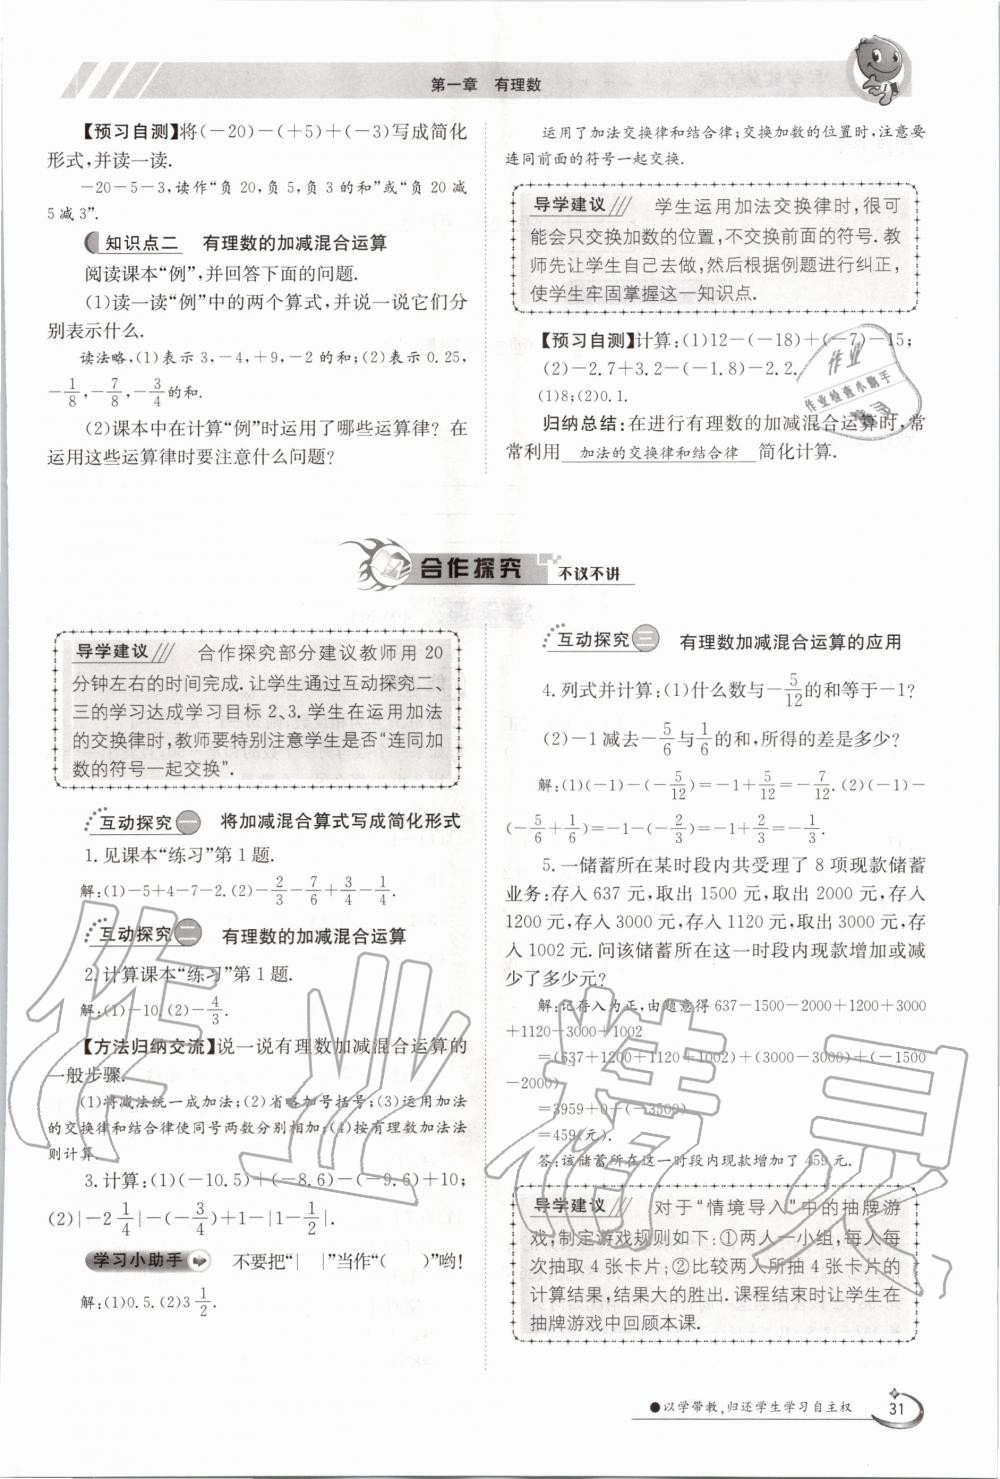 第一章 有理数
【预习自测】将(－20)－(＋5)＋(－3)写成简化
形式,并读一读.
－20－5－3,读作“负 20,负 5,负 3 的和”或“负 20 减
5 减 3”.
知识点二 有理数的加减混合运算
阅读课本“例”,并回答下面的问题.
(1)读一读“例”中的两个算式,并说一说它们分
别表示什么.
读法略,(1)表示 3,－4,＋9,－2 的和;(2)表示 0.25,
－1/8,－7/8,－3/4的和.
(2)课本中在计算“例”时运用了哪些运算律? 在
运用这些运算律时要注意什么问题?
运用了加法交换律和结合律;交换加数的位置时,注意要
连同前面的符号一起交换.
导学建议 学生运用加法交换律时,很可
能会只交换加数的位置,不交换前面的符号.教
师先让学生自己去做,然后根据例题进行纠正,
使学生牢固掌握这一知识点.
【预习自测】计算:(1)12－(－18)＋(－7)－15;
(2)－2.7＋3.2－(－1.8)－2.2.
(1)8;(2)0.1.
归纳总结:在进行有理数的加减混合运算时,常
常利用 加法的交换律和结合律 简化计算.
作业
作业检查小助手
合作探究 不议不讲
导学建议 合作探究部分建议教师用 20
分钟左右的时间完成.让学生通过互动探究二、
三的学习达成学习目标 2、3.学生在运用加法
的交换律时,教师要特别注意学生是否“连同加
数的符号一起交换”.
互动探究 一 将加减混合算式写成简化形式
1.见课本“练习”第 1 题.
解:(1)－5＋4－7－2.(2)－2/3－7/6＋3/4－1/4.
互动探究 二 有理数的加减混合运算
2.计算课本“练习”第 1 题.
解:(1)－10.(2)－4/3.
【方法归纳交流】说一说有理数加减混合运算的
一般步骤.
(1)将减法统一成加法;(2)省略加号括号;(3)运用加法
的交换律和结合律使同号两数分别相加;(4)按有理数加法法
则计算.
3.计算:(1)(－10.5)＋(－8.6)－(－9.6)＋10;
(2)|－2 1/4|－(－3/4)＋1－|1－1/2|.
学习小助手 不要把“| |”当作“( )”哟!
解:(1)0.5.(2)3 1/2.
互动探究 三 有理数加减混合运算的应用
4.列式并计算:(1)什么数与－5/12的和等于－1?
(2)－1 减去－5/6与1/6的和,所得的差是多少?
解:(1)(－1)－(－5/12)＝－1＋5/12＝－7/12.(2)(－1)－
(－5/6＋1/6)＝－1－(－2/3)＝－1＋2/3＝－1/3.
5.一储蓄所在某时段内共受理了 8 项现款储蓄
业务:存入 637 元,取出 1500 元,取出 2000 元,存入
1200 元,存入 3000 元,存入 1120 元,取出 3000 元,存
入 1002 元.问该储蓄所在这一时段内现款增加或减
少了多少元?
解:记存入为正,由题意得 637－1500－2000＋1200＋3000
＋1120－3000＋1002
＝(637＋1200＋1120＋1002)＋(3000－3000)＋(－1500
－2000)
＝3959＋0＋(－3500)
＝459(元).
答:该储蓄所在这一时段内现款增加了 459 元.
导学建议 对于“情境导入”中的抽牌游
戏,制定游戏规则如下:①两人一小组,每人每
次抽取 4 张卡片;②比较两人所抽 4 张卡片的
计算结果,结果大的胜出.课程结束时让学生在
抽牌游戏中回顾本课.
作业精灵
●以学带教,归还学生学习自主权
31